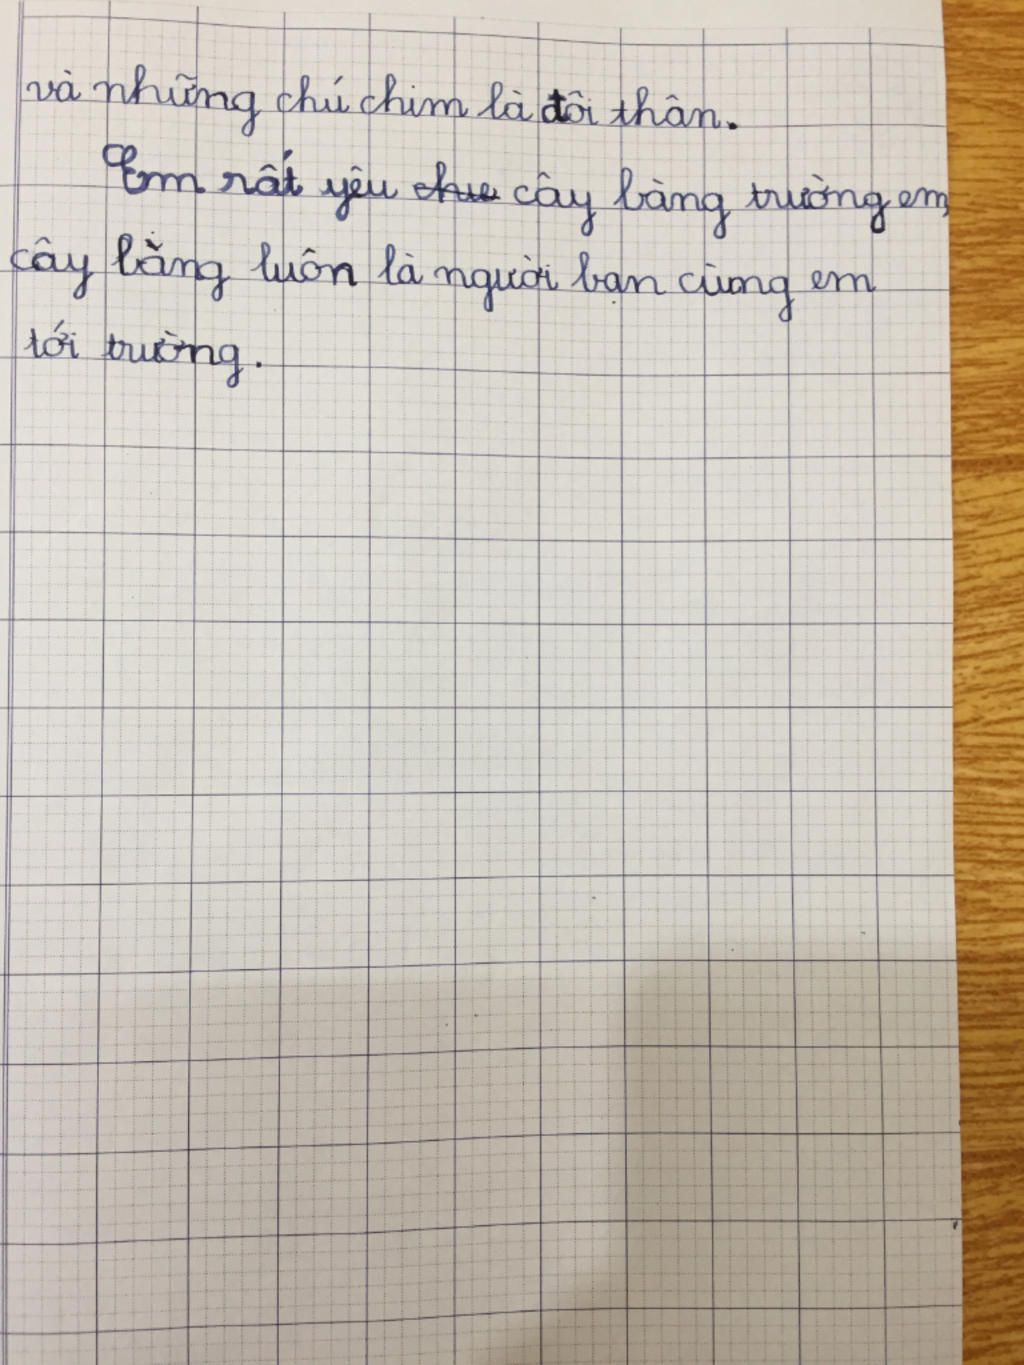 và những chú chim là đôi thân.
Em rất yêu cây bàng trường em,
cây bàng luôn là người bạn cùng em
tới trường.